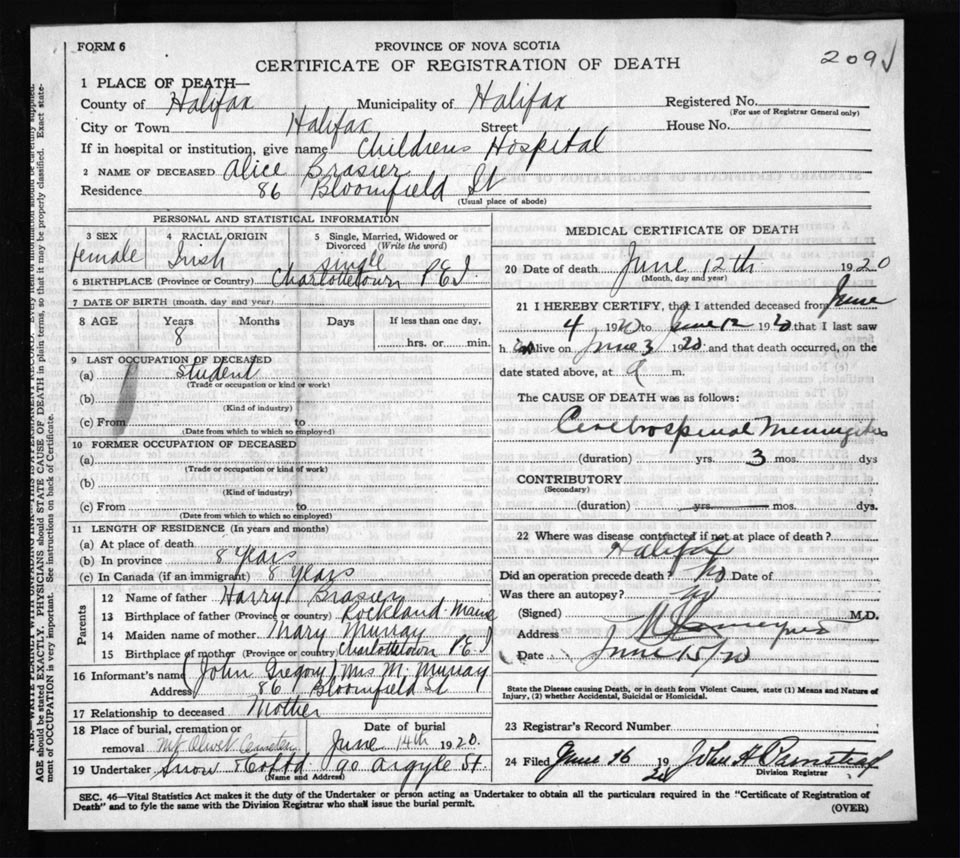 FORM 6
PROVINCE OF NOVA SCOTIA
CERTIFICATE OF REGISTRATION OF DEATH
209
1 PLACE OF DEATH—
County of Halifax Municipality of Halifax Registered No.
(For use of Registrar General only)
City or Town Halifax Street House No.
If in hospital or institution, give name Childrens Hospital
2 NAME OF DECEASED Alice Brasier
Residence 86 Bloomfield St
(Usual place of abode)
PERSONAL AND STATISTICAL INFORMATION
3 SEX 4 RACIAL ORIGIN 5 Single, Married, Widowed or Divorced (Write the word)
female Irish single
6 BIRTHPLACE (Province or Country) Charlottetown P E I
7 DATE OF BIRTH (month, day and year)
8 AGE Years Months Days If less than one day,
8 hrs. or min.
9 LAST OCCUPATION OF DECEASED
(a) Student
(Trade or occupation or kind or work)
(b)
(Kind of industry)
(c) From to
(Date from which to which so employed)
10 FORMER OCCUPATION OF DECEASED
(a)
(Trade or occupation or kind of work)
(b)
(Kind of industry)
(c) From to
(Date from which to which so employed)
11 LENGTH OF RESIDENCE (In years and months)
(a) At place of death
(b) In province 8 years
(c) In Canada (if an immigrant) 8 years
Parents
12 Name of father Harry Brasier
13 Birthplace of father (Province or country) Rockland Maine
14 Maiden name of mother Mary Murray
15 Birthplace of mother (Province or country) Charlottetown P E I
16 Informant's name (John Gregory) Mrs M. Murray
Address 86 Bloomfield St
17 Relationship to deceased Mother
18 Place of burial, cremation or Date of burial
removal Mt Olivet Cemetery June 14th 1920.
19 Undertaker Snow & Co Ltd 90 Argyle St.
(Name and Address)
MEDICAL CERTIFICATE OF DEATH
20 Date of death June 12th 1920
(Month, day and year)
21 I HEREBY CERTIFY, that I attended deceased from June
4 1920 to June 12 1920 that I last saw
h alive on June 3 1920 and that death occurred, on the
date stated above, at m.
The CAUSE OF DEATH was as follows:
Cerebrospinal Meningitis
(duration) yrs. 3 mos. dys
CONTRIBUTORY
(Secondary)
(duration) yrs. mos. dys.
22 Where was disease contracted if not at place of death?
Halifax
Did an operation precede death? No Date of
Was there an autopsy? no
(Signed) M.D.
Address
Date June 15/20
State the Disease causing Death, or in death from Violent Causes, state (1) Means and Nature of
Injury, (2) whether Accidental, Suicidal or Homicidal.
23 Registrar's Record Number
24 Filed June 16 1920 John H
Division Registrar
SEC. 46—Vital Statistics Act makes it the duty of the Undertaker or person acting as Undertaker to obtain all the particulars required in the "Certificate of Registration of
Death" and to fyle the same with the Division Registrar who shall issue the burial permit.
(OVER)
AGE should be stated EXACTLY. PHYSICIANS should STATE CAUSE OF DEATH in plain terms, so that it may be properly classified. Exact state-
ment of OCCUPATION is very important. See instructions on back of Certificate.